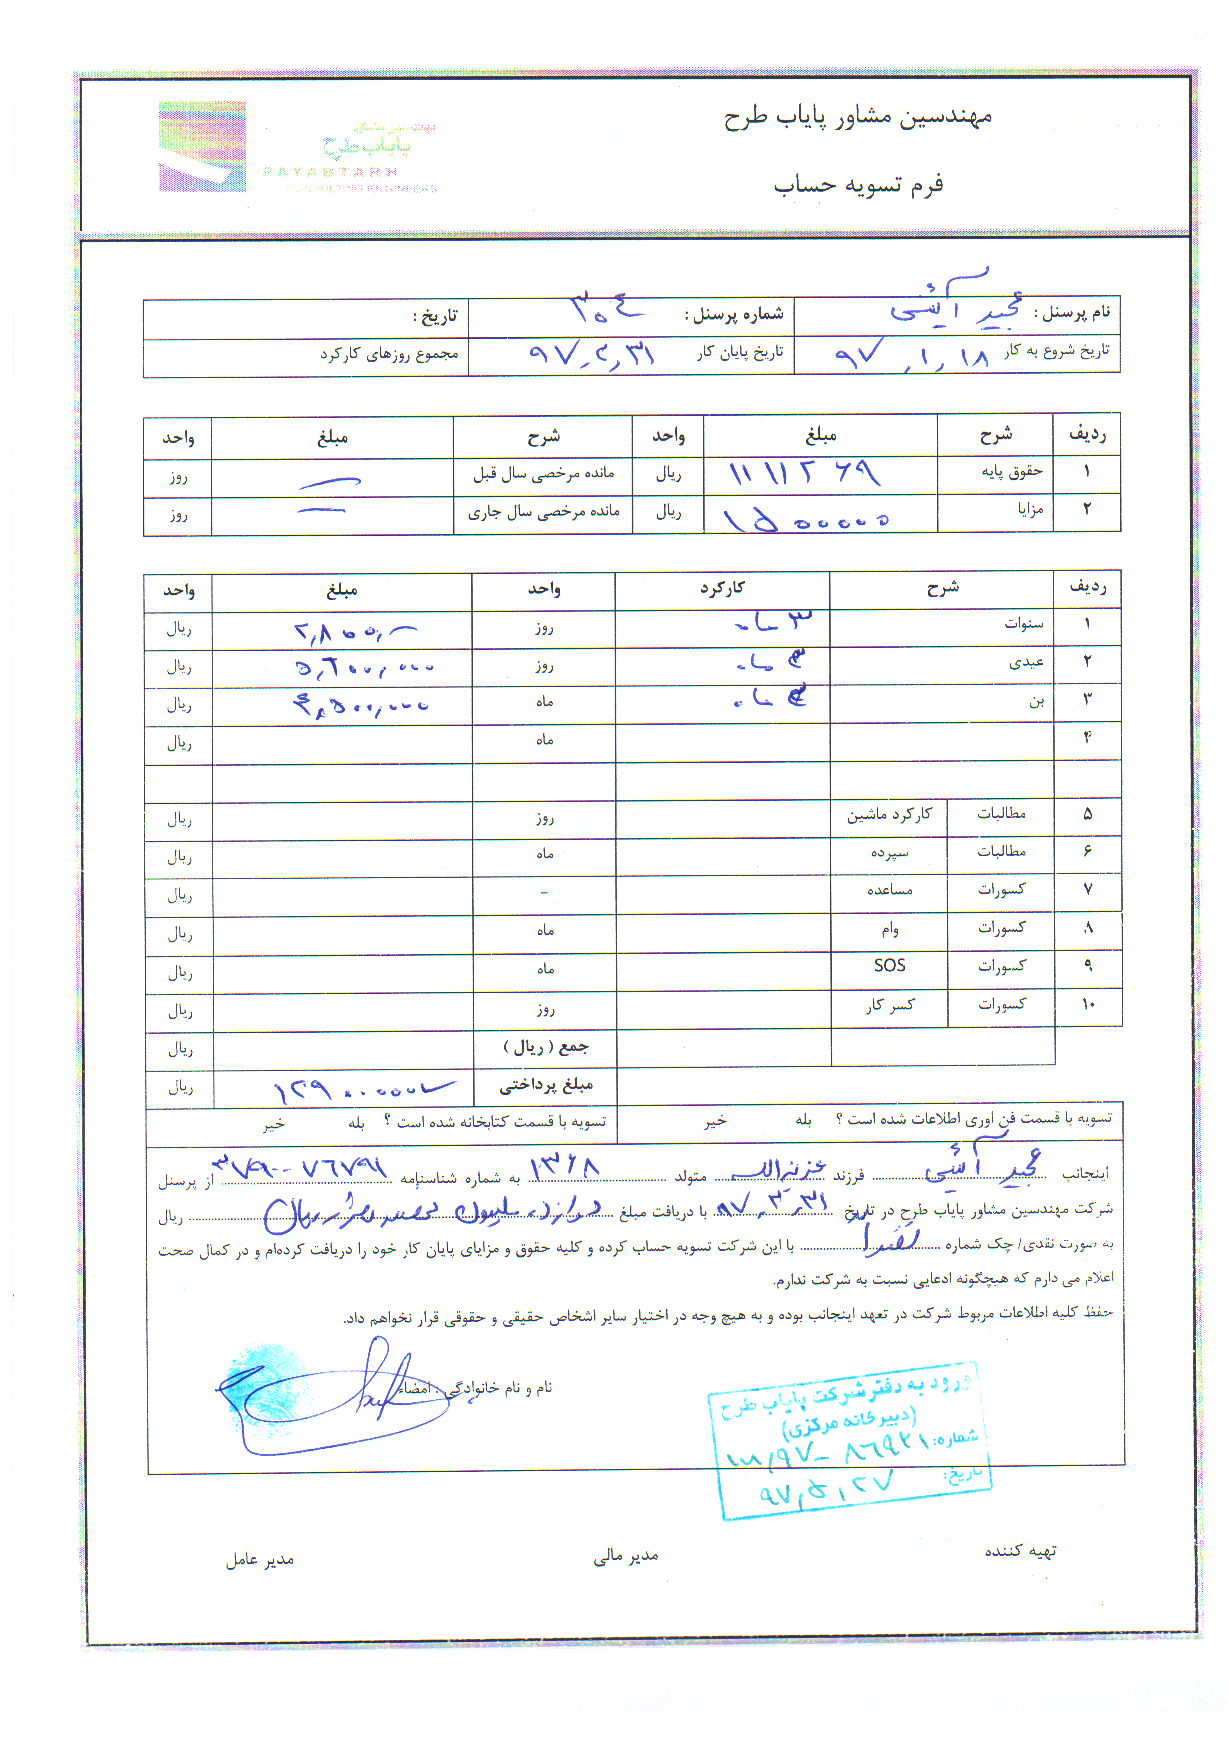 مهندسین مشاور پایاب طرح
فرم تسویه حساب
مهندسین مشاور
پایاب طرح
PAYABTARH
CONSULTING ENGINEERS
نام پرسنل : مجید آئینی شماره پرسنل : ۳۰۴ تاریخ :
تاریخ شروع به کار ۹۷,۱,۱۸ تاریخ پایان کار ۹۷,۲,۳۱ مجموع روزهای کارکرد
ردیف شرح مبلغ واحد شرح مبلغ واحد
۱ حقوق پایه ۱۱۱۱۲۶۹ ریال مانده مرخصی سال قبل — روز
۲ مزایا ۱۵۰۰۰۰۰ ریال مانده مرخصی سال جاری — روز
ردیف شرح کارکرد واحد مبلغ واحد
۱ سنوات ۳ ماه روز ۲,۸۰۰,— ریال
۲ عیدی ۳ ماه روز ۵,۶۰۰,۰۰۰ ریال
۳ بن ۳ ماه ماه ۴,۵۰۰,۰۰۰ ریال
۴ ماه ریال
۵ مطالبات کارکرد ماشین روز ریال
۶ مطالبات سپرده ماه ریال
۷ کسورات مساعده - ریال
۸ کسورات وام ماه ریال
۹ کسورات SOS ماه ریال
۱۰ کسورات کسر کار روز ریال
جمع ( ریال ) ریال
مبلغ پرداختی ۱۲۹۰۰۰۰۰ ریال
تسویه با قسمت فن اوری اطلاعات شده است ؟ بله خیر تسویه با قسمت کتابخانه شده است ؟ بله خیر
اینجانب مجید آئینی فرزند عزیزالله متولد ۱۳۶۸ به شماره شناسنامه ۳۷۹۰۰۷۶۷۹۱ از پرسنل
شرکت مهندسین مشاور پایاب طرح در تاریخ ۹۷,۳,۳۱ با دریافت مبلغ دوازده میلیون نهصد هزار ریال ریال
به صورت نقدی/ چک شماره نقدا با این شرکت تسویه حساب کرده و کلیه حقوق و مزایای پایان کار خود را دریافت کرده‌ام و در کمال صحت
اعلام می دارم که هیچگونه ادعایی نسبت به شرکت ندارم.
حفظ کلیه اطلاعات مربوط شرکت در تعهد اینجانب بوده و به هیچ وجه در اختیار سایر اشخاص حقیقی و حقوقی قرار نخواهم داد.
نام و نام خانوادگی . امضاء
ورود به دفتر شرکت پایاب طرح
(دبیرخانه مرکزی)
شماره: ۱۰۰/۹۷-۸۶۹۲۱
تاریخ: ۹۷,۵,۲۷
تهیه کننده مدیر مالی مدیر عامل